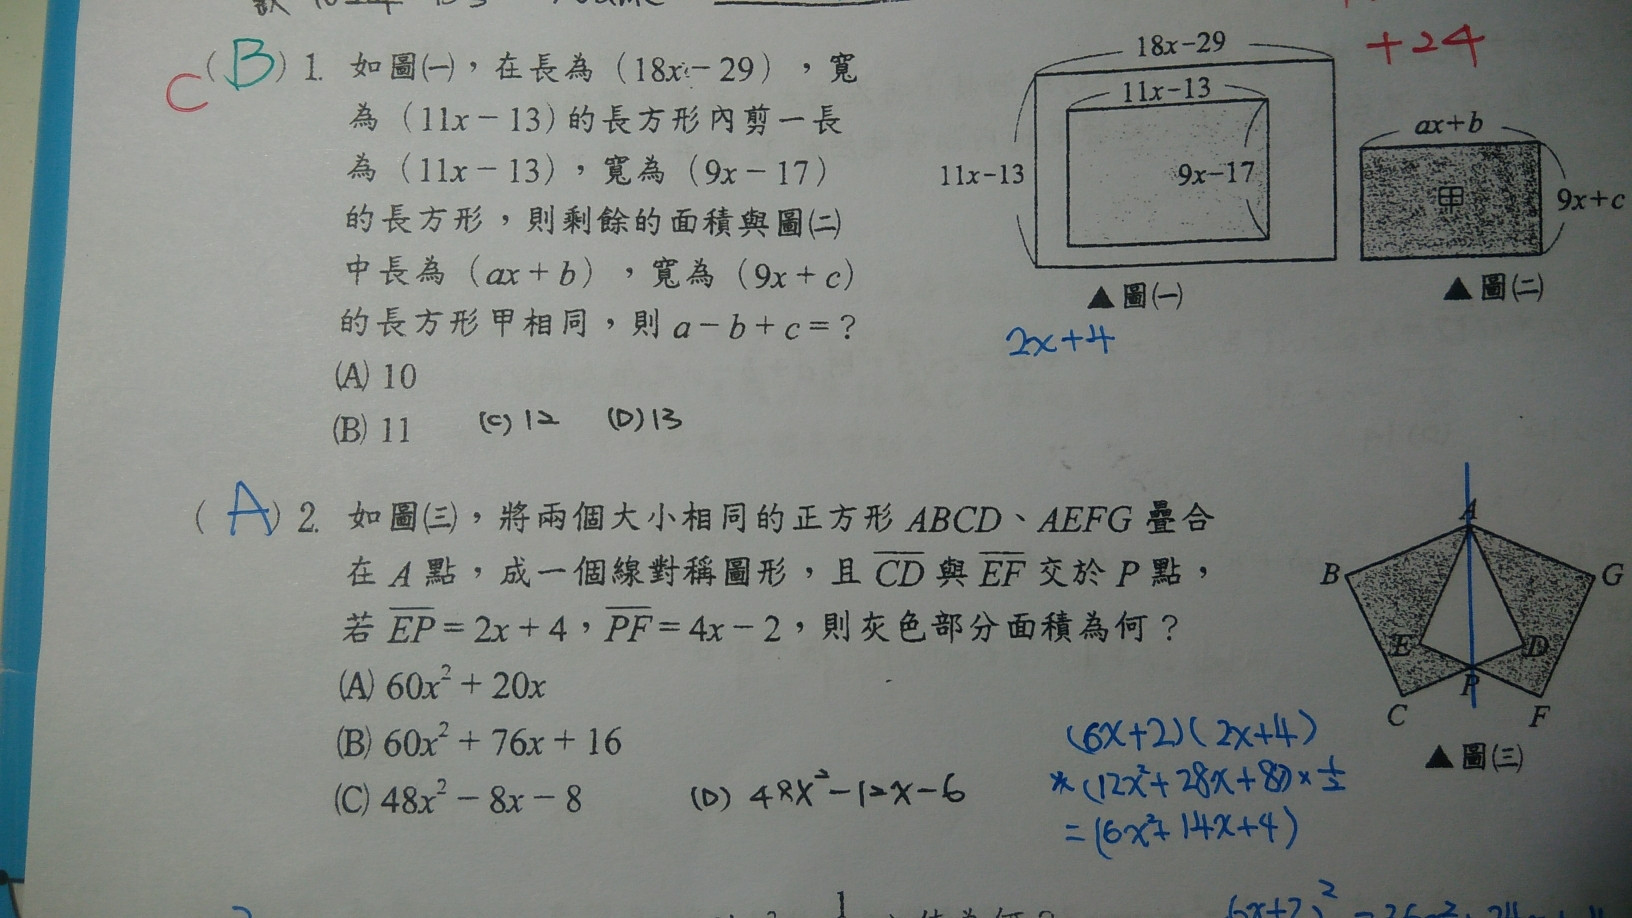 (B) 1. 如圖㈠，在長為（18x－29），寬
C
為（11x－13）的長方形內剪一長
為（11x－13），寬為（9x－17）
的長方形，則剩餘的面積與圖㈡
中長為（ax＋b），寬為（9x＋c）
的長方形甲相同，則 a－b＋c＝？
(A) 10
(B) 11 (C) 12 (D) 13
+24
18x－29
11x－13
11x－13
9x－17
▲圖㈠
ax＋b
甲
9x＋c
▲圖㈡
2x+4
(A) 2. 如圖㈢，將兩個大小相同的正方形 ABCD、AEFG 疊合
在 A 點，成一個線對稱圖形，且 C̅D̅ 與 E̅F̅ 交於 P 點，
若 E̅P̅＝2x＋4，P̅F̅＝4x－2，則灰色部分面積為何？
(A) 60x²＋20x
(B) 60x²＋76x＋16
(C) 48x²－8x－8 (D) 48x²-12x-6
A
B
G
E
D
P
C
F
▲圖㈢
(6x+2)(2x+4)
*(12x²+28x+8)×½
=(6x²+14x+4)